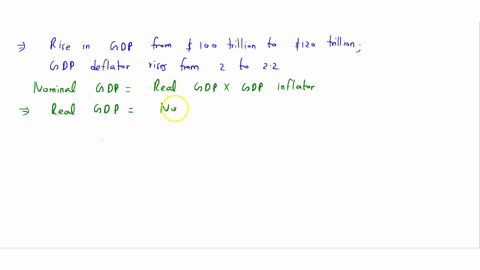 ⇒ Rise in GDP from $100 trillion to $120 trillion;
GDP deflator rises from 2 to 2.2
Nominal GDP = Real GDP × GDP inflator
⇒ Real GDP = No